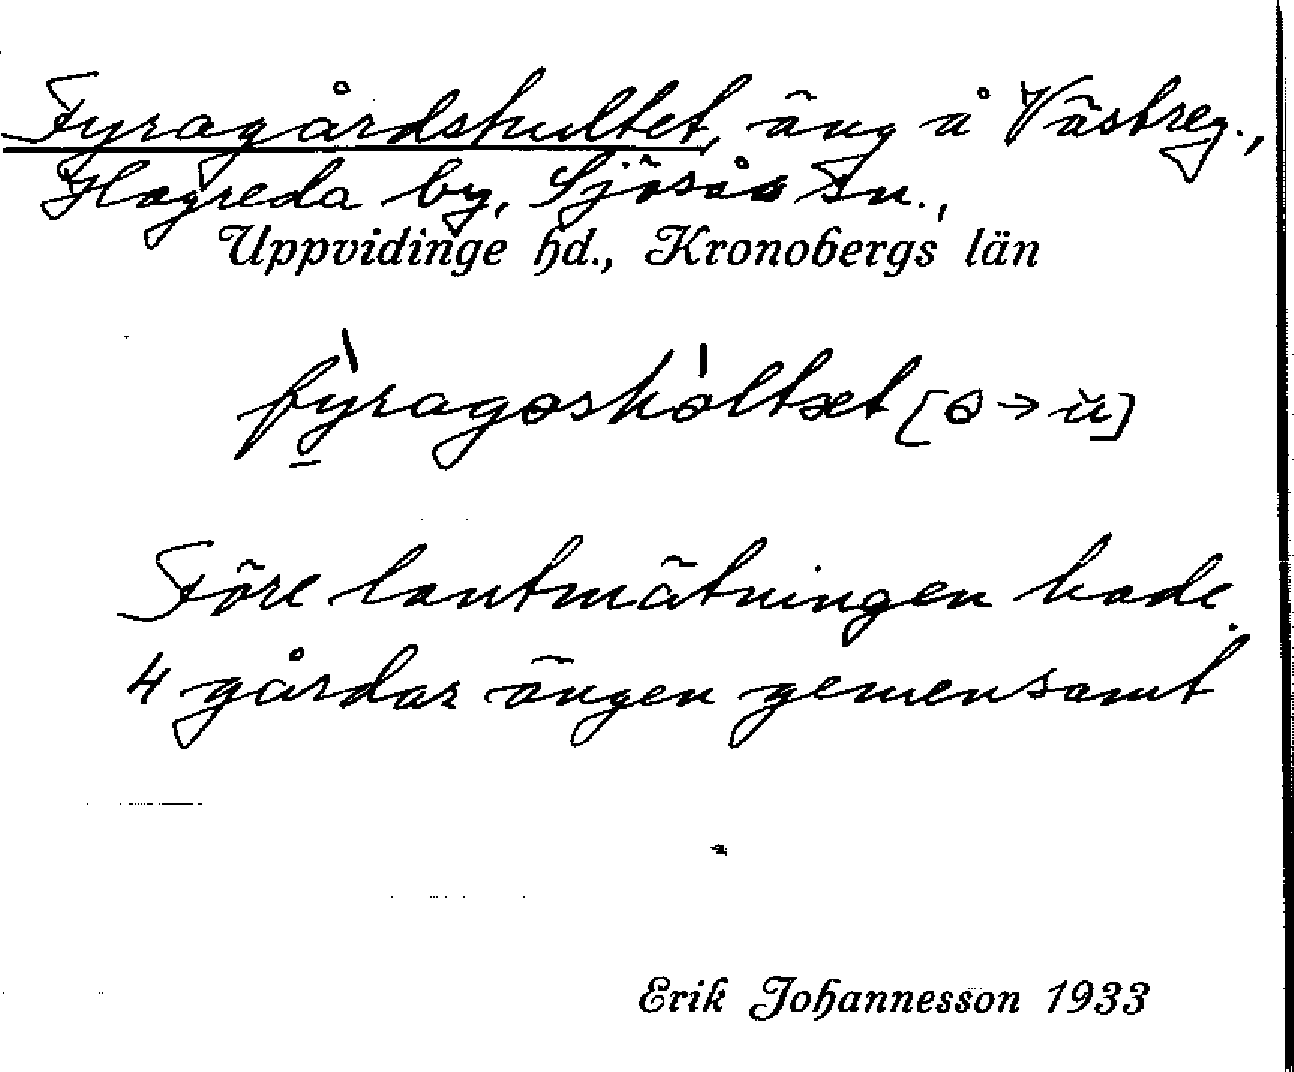 Fyragårdshultet, äng å Västreg.,
Hagreda by, Sjösås sn.,
Uppvidinge hd., Kronobergs län
fỳ̱ragɵshɵ̍ltæt [ɵ→ŭ]
Före lantmätningen hade
4 gårdar ängen gemensamt.
Erik Johannesson 1933